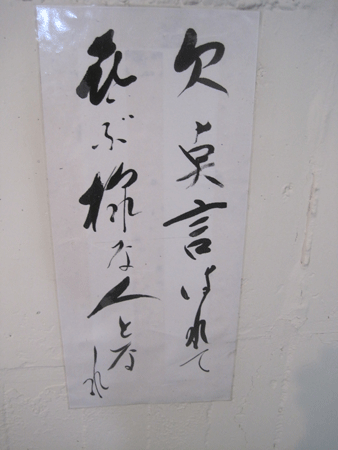 欠点言われて
喜ぶ様な人となれ